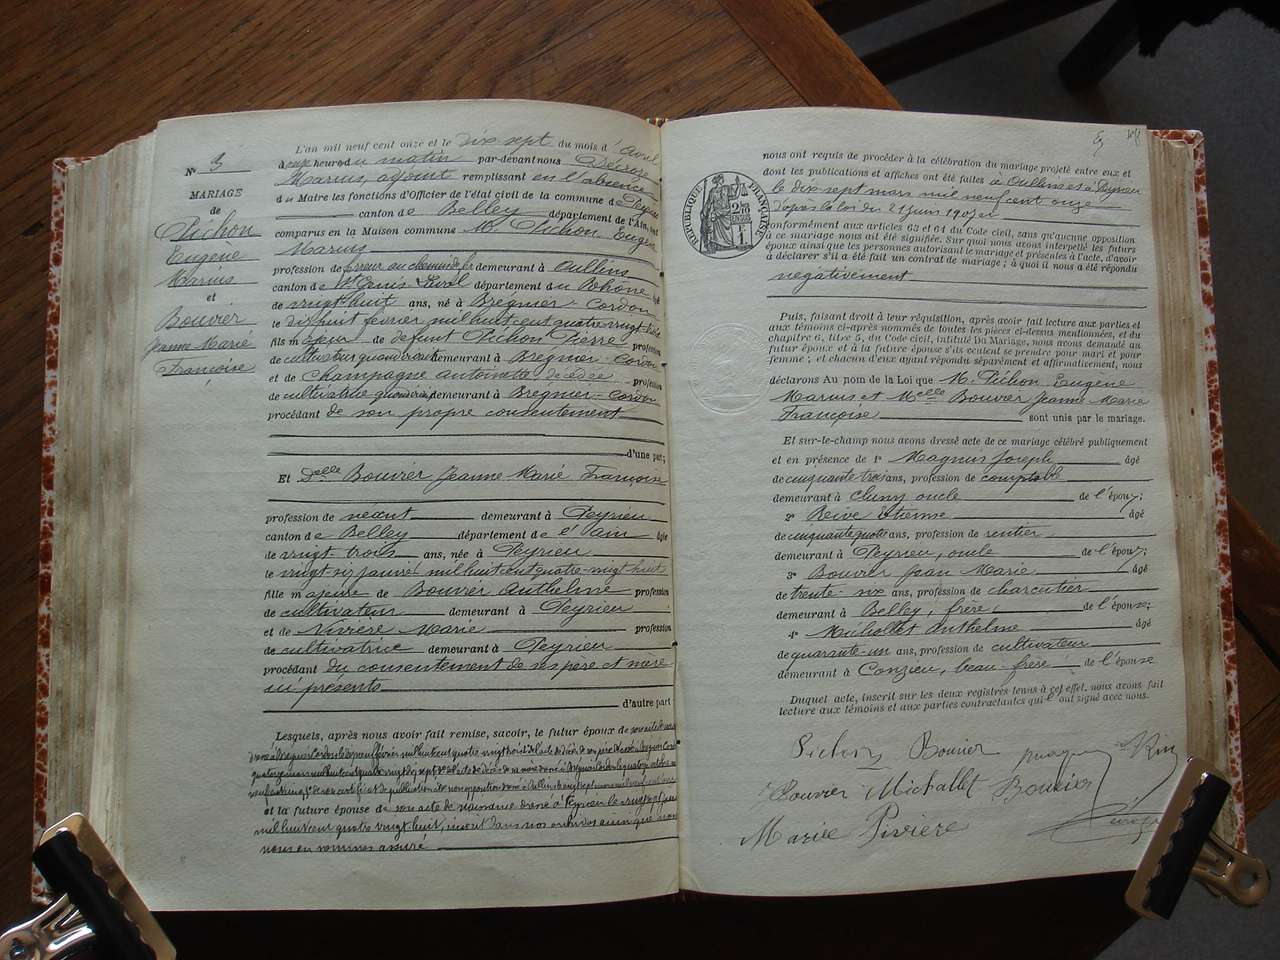 N° 3
MARIAGE
de
Pichon
Eugène
Marius
et
Bouvier
Jeanne Marie
Françoise
L'an mil neuf cent onze et le dix sept du mois d'Avril
à onze heures du matin par-devant nous
Marius, adjoint remplissant en l'absence
du Maire les fonctions d'Officier de l'état civil de la commune de Peyrieu
canton de Belley département de l'Ain, ont
comparus en la Maison commune M. Pichon Eugène
Marius
profession de au chemin de fer demeurant à Oullins
canton de St Genis Laval département du Rhône âgé
de vingt huit ans, né à Bregnier-Cordon
le dix huit février mil huit cent quatre vingt trois
fils majeur de défunt Pichon Pierre profession
de cultivateur quand vivait demeurant à Bregnier-Cordon
et de Champagne Antoinette décédée profession
de cultivatrice demeurant à Bregnier-Cordon
procédant de son propre consentement
d'une part;
Et Delle Bouvier Jeanne Marie Françoise
profession de néant demeurant à Peyrieu
canton de Belley département de l'Ain âgée
de vingt-trois ans, née à Peyrieu
le vingt six janvier mil huit cent quatre-vingt huit
fille majeure de Bouvier Anthelme profession
de cultivateur demeurant à Peyrieu
et de Rivière Marie profession
de cultivatrice demeurant à Peyrieu
procédant du consentement de ses père et mère
ici présents
d'autre part
Lesquels, après nous avoir fait remise, savoir, le futur époux de son acte de
et la future épouse de son acte de naissance dressé à Peyrieu le vingt sept janvier
mil huit cent quatre vingt huit, inscrit dans nos archives ainsi que nous
nous en sommes assuré
nous ont requis de procéder à la célébration du mariage projeté entre eux et
dont les publications et affiches ont été faites à Oullins et à Peyrieu
le dix sept mars mil neuf cent onze
d'après la loi du 21 juin 1907 et
conformément aux articles 63 et 64 du Code civil, sans qu'aucune opposition
à ce mariage nous ait été signifiée. Sur quoi nous avons interpellé les futurs
époux ainsi que les personnes autorisant le mariage et présentes à l'acte, d'avoir
à déclarer s'il a été fait un contrat de mariage; à quoi il nous a été répondu
négativement
RÉPUBLIQUE FRANÇAISE
2/10 EN SUS
1F
Puis, faisant droit à leur réquisition, après avoir fait lecture aux parties et
aux témoins ci-après nommés de toutes les pièces ci-dessus mentionnées, et du
chapitre 6, titre 5, du Code civil, intitulé Du Mariage, nous avons demandé au
futur époux et à la future épouse s'ils veulent se prendre pour mari et pour
femme; et chacun d'eux ayant répondu séparément et affirmativement, nous
déclarons Au nom de la Loi que M. Pichon Eugène
Marius et Melle Bouvier Jeanne Marie
Françoise sont unis par le mariage.
Et sur-le-champ nous avons dressé acte de ce mariage célébré publiquement
et en présence de 1° Magnin Joseph âgé
de cinquante trois ans, profession de comptable
demeurant à Cluny oncle de l'époux;
2° Étienne âgé
de cinquante quatre ans, profession de rentier
demeurant à Peyrieu, oncle de l'époux;
3° Bouvier Jean Marie âgé
de trente-six ans, profession de charcutier
demeurant à Belley, frère, de l'épouse;
4° Michollet Anthelme âgé
de quarante-un ans, profession de cultivateur
demeurant à Conzieu, beau-frère de l'épouse
Duquel acte, inscrit sur les deux registres tenus à cet effet, nous avons fait
lecture aux témoins et aux parties contractantes qui ont signé avec nous.
Pichon Bouvier
Bouvier Michallet Bouvier
Mariée Rivière